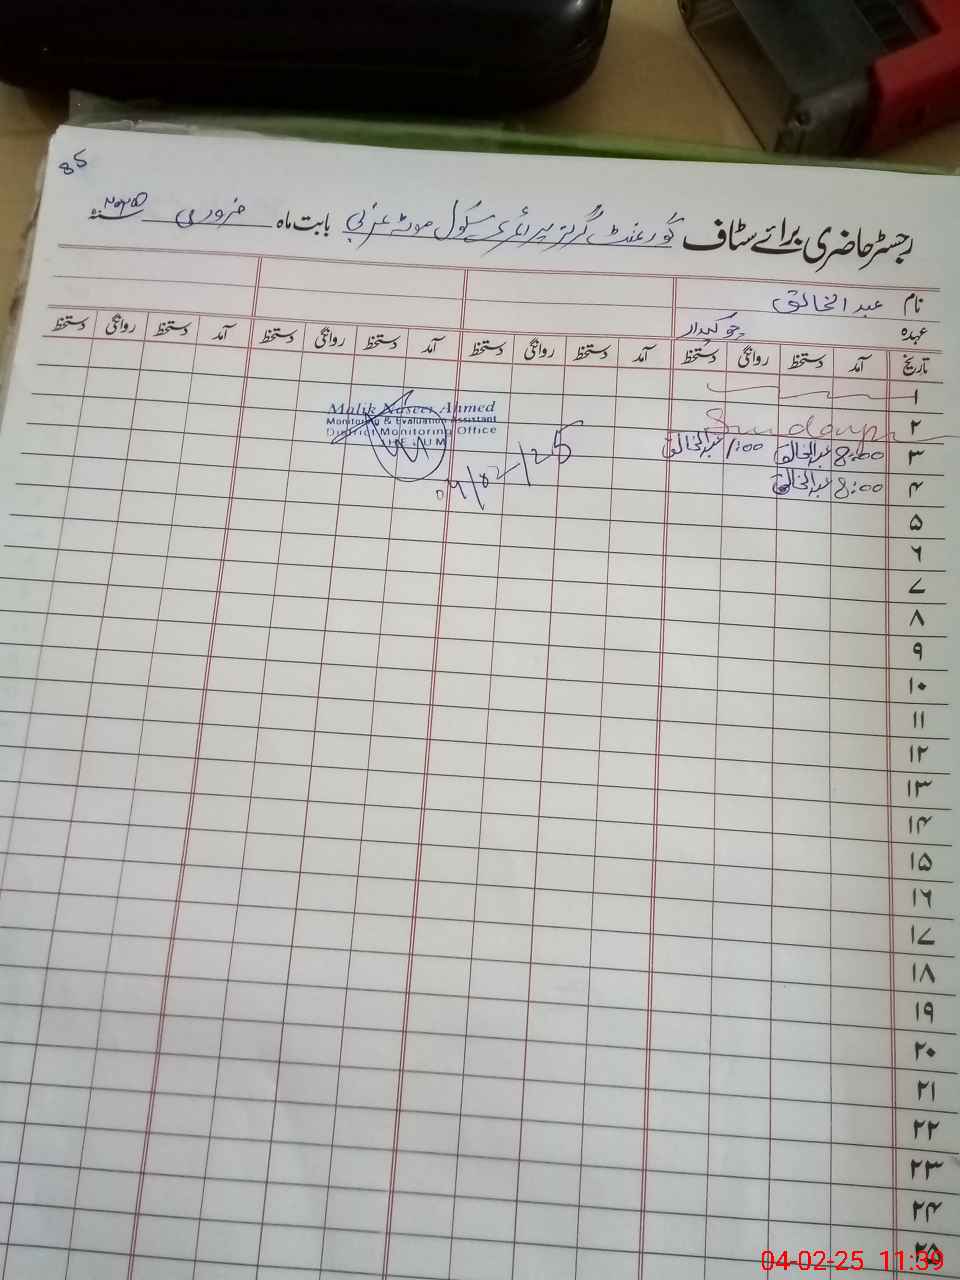 85
رجسٹر حاضری برائے سٹاف گورنمنٹ گرلز پرائمری سکول موٹہ غربی بابت ماہ فروری سنہ ۲۰۲۵
نام عبدالخالق
عہدہ چوکیدار
تاریخ آمد دستخط روانگی دستخط آمد دستخط روانگی دستخط آمد دستخط روانگی دستخط آمد دستخط روانگی دستخط
۱
۲ Sunday
۳ 8:00 عبدالخالق 1:00 عبدالخالق
۴ 8:00 عبدالخالق
Malik Naseer Ahmed
Monitoring & Evaluation Assistant
District Monitoring Office
JHELUM
04/02/25
۵
۶
۷
۸
۹
۱۰
۱۱
۱۲
۱۳
۱۴
۱۵
۱۶
۱۷
۱۸
۱۹
۲۰
۲۱
۲۲
۲۳
۲۴
۲۵
04-02-25 11:39